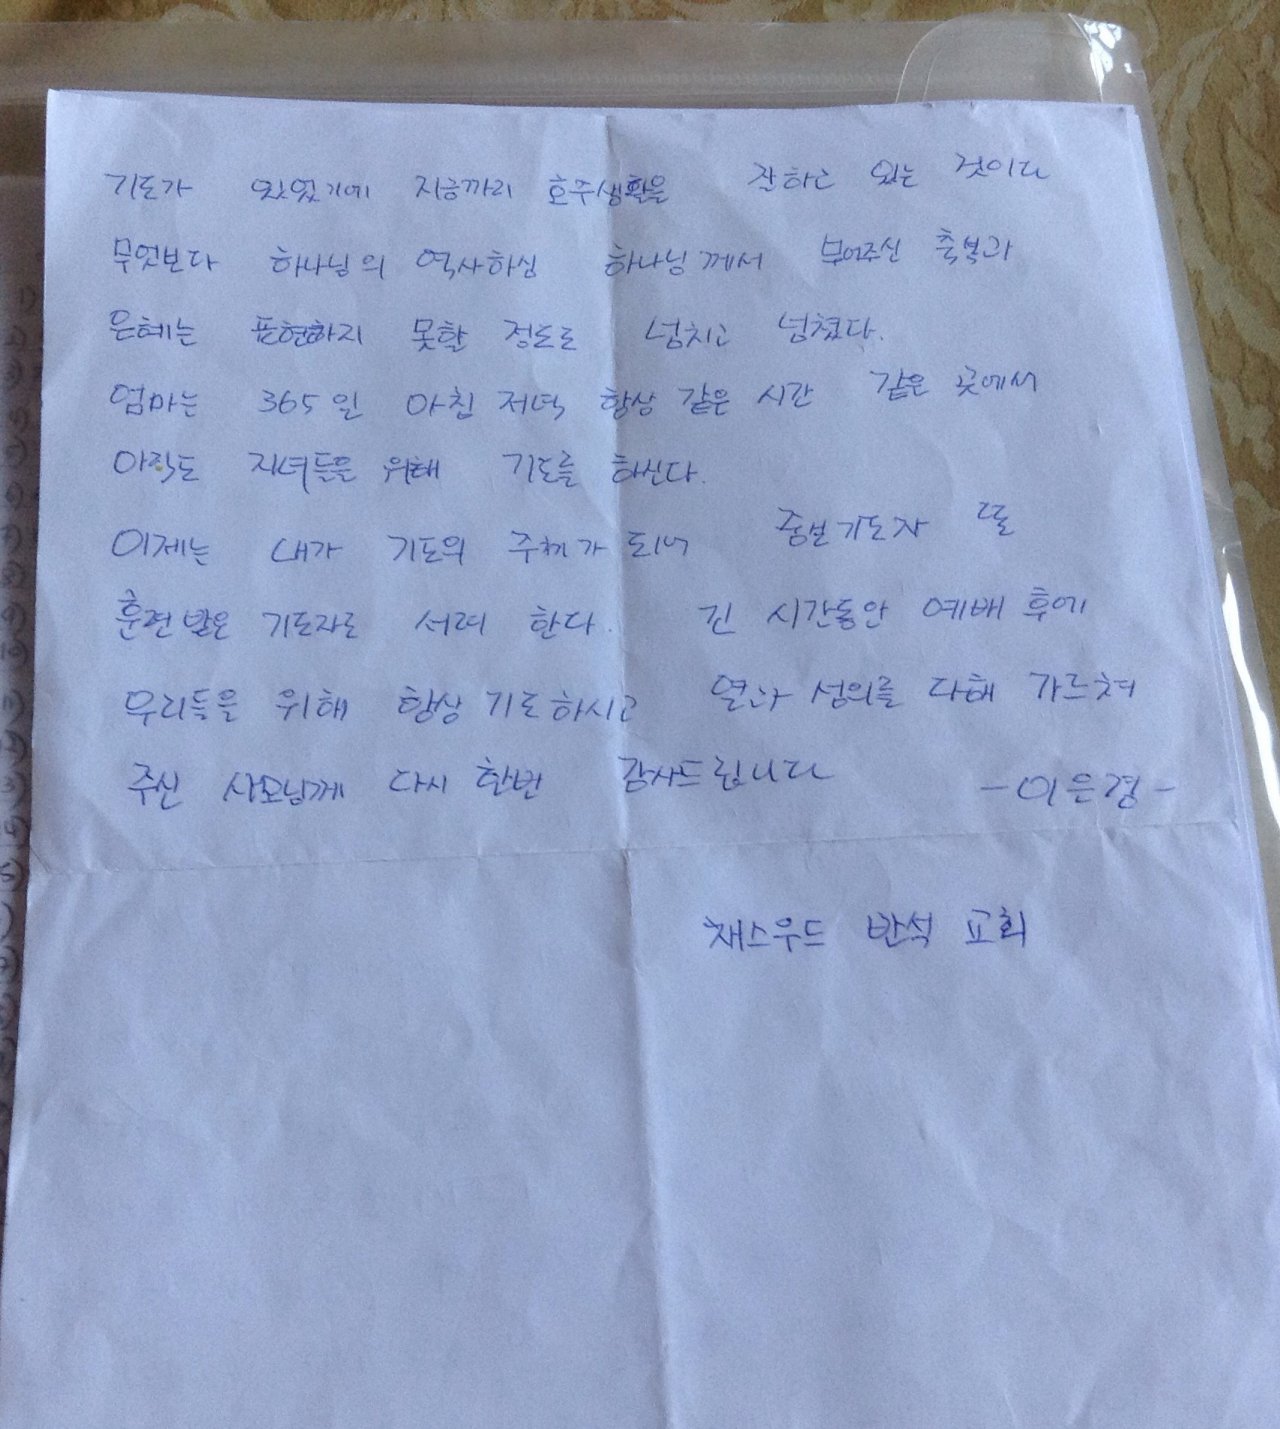 기도가 있었기에 지금까지 호주생활을 잘하고 있는 것이다
무엇보다 하나님의 역사하심 하나님께서 부어주신 축복과
은혜는 표현하지 못할 정도로 넘치고 넘쳤다.
엄마는 365일 아침 저녁 항상 같은 시간 같은 곳에서
아직도 자녀들을 위해 기도를 하신다.
이제는 내가 기도의 주체가 되어 중보기도자 또
훈련받은 기도자로 서려 한다. 긴 시간동안 예배 후에
우리들을 위해 항상 기도하시고 열과 성의를 다해 가르쳐
주신 사모님께 다시 한번 감사드립니다 -이은경-
채스우드 반석 교회